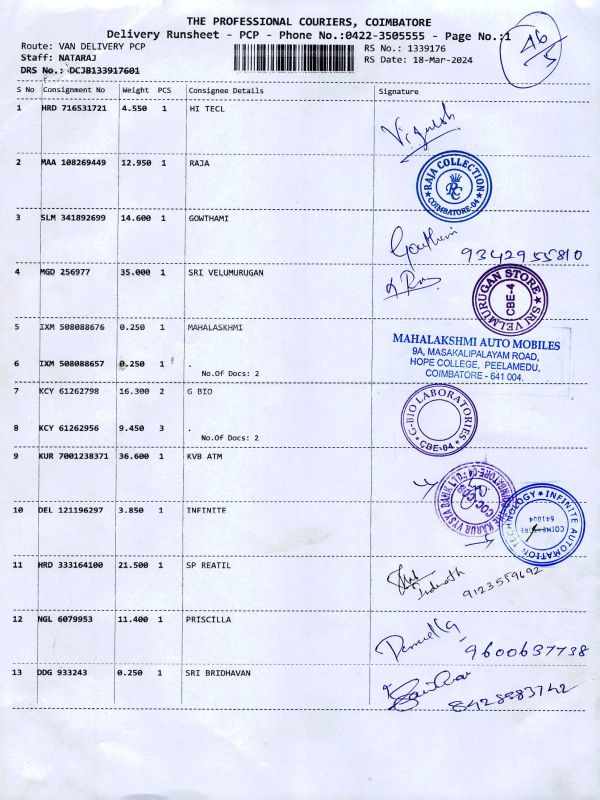 THE PROFESSIONAL COURIERS, COIMBATORE
Delivery Runsheet - PCP - Phone No.:0422-3505555 - Page No.:1
46/5
Route: VAN DELIVERY PCP
RS No.: 1339176
Staff: NATARAJ
RS Date: 18-Mar-2024
DRS No.: DCJB133917601
S No Consignment No Weight PCS Consignee Details Signature
1 HRD 716531721 4.550 1 HI TECL
2 MAA 108269449 12.950 1 RAJA
RAJA COLLECTION
RC
COIMBATORE-04
3 SLM 341892699 14.600 1 GOWTHAMI
Gowthami
9342955810
4 MGD 256977 35.000 1 SRI VELUMURUGAN
SRI VELMURUGAN STORE
CBE-4
5 IXM 508088676 0.250 1 MAHALASKHMI
MAHALAKSHMI AUTO MOBILES
9A, MASAKALIPALAYAM ROAD,
HOPE COLLEGE, PEELAMEDU,
COIMBATORE - 641 004.
6 IXM 508088657 0.250 1 .
No.Of Docs: 2
7 KCY 61262798 16.300 2 G BIO
G-BIO LABORATORIES
CBE-04
8 KCY 61262956 9.450 3 .
No.Of Docs: 2
9 KUR 7001238371 36.600 1 KVB ATM
10 DEL 121196297 3.850 1 INFINITE
INFINITE AUTOMATION TECHNOLOGY
COIMBATORE
641004
11 HRD 333164100 21.500 1 SP REATIL
9123559692
12 NGL 6079953 11.400 1 PRISCILLA
9600637738
13 DDG 933243 0.250 1 SRI BRIDHAVAN
8428983742